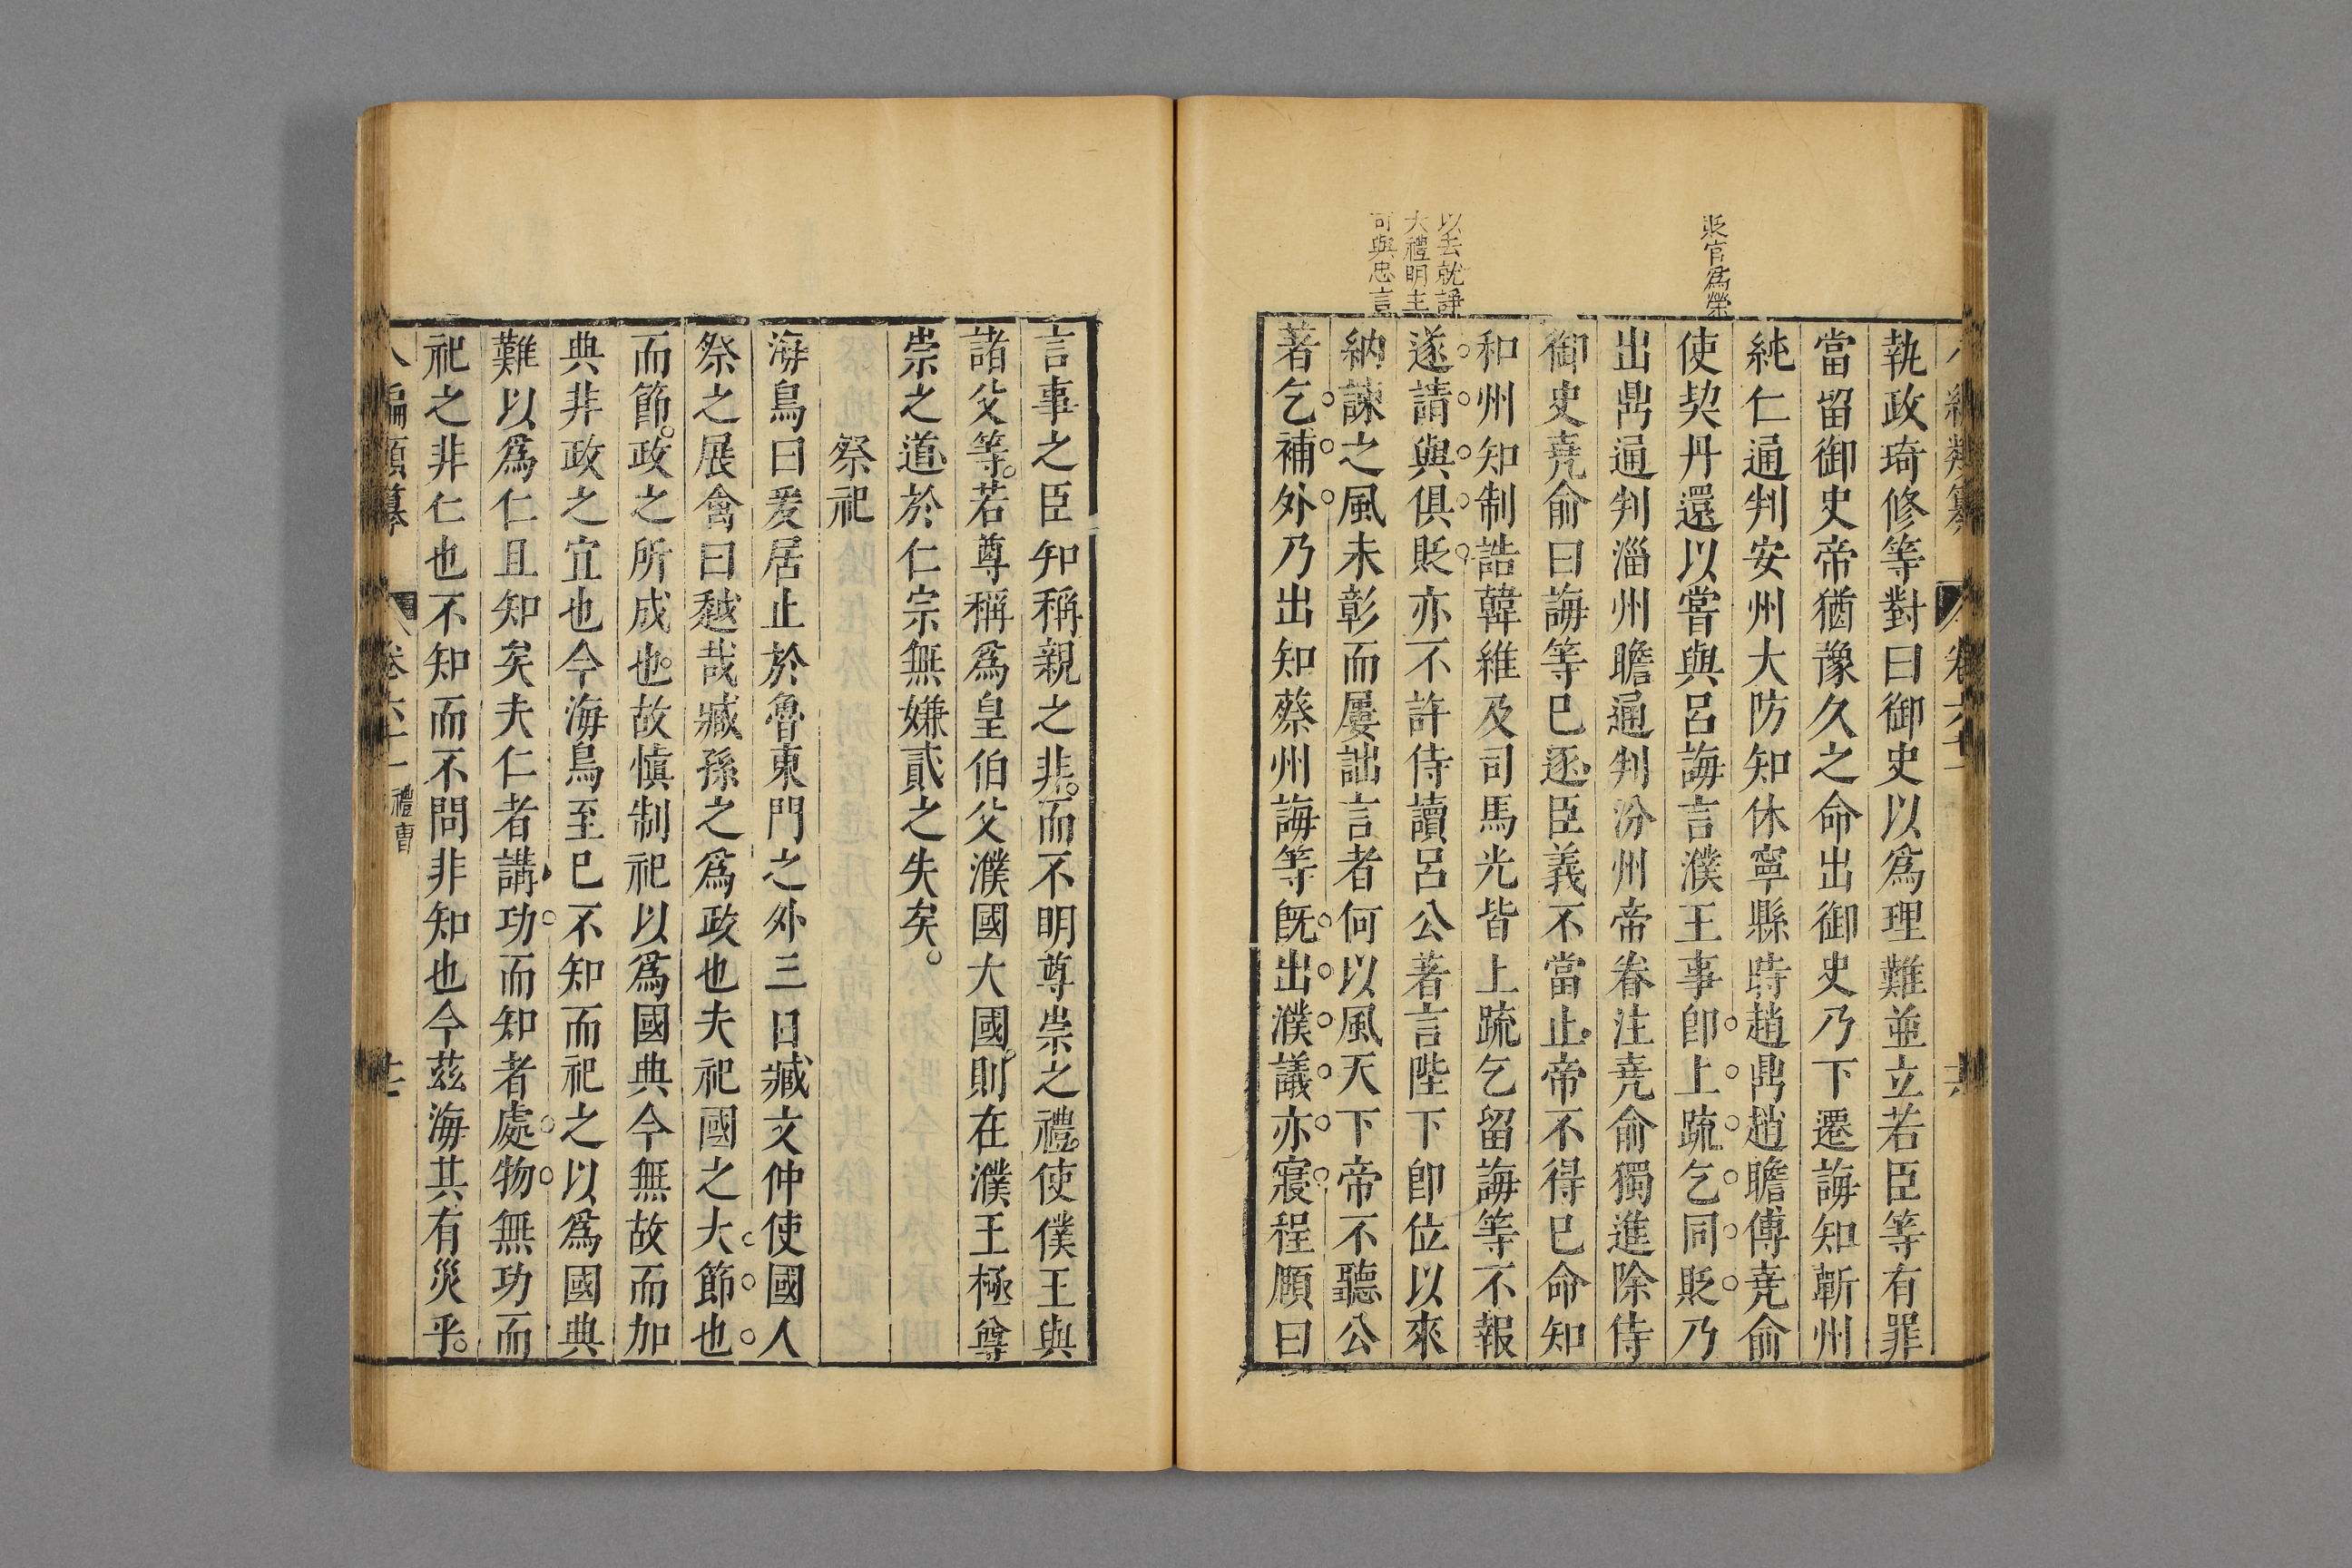 執政琦修等對曰御史以爲理難並立若臣等有罪
當留御史帝猶豫久之命出御史乃下遷誨知蘄州
純仁通判安州大防知休寧縣時趙鼎趙瞻傅堯俞
貶官爲榮
使契丹還以嘗與呂誨言濮王事卽上疏乞同貶乃
出鼎通判淄州瞻通判汾州帝眷注堯俞獨進除侍
御史堯俞曰誨等巳逐臣義不當止帝不得巳命知
和州知制誥韓維及司馬光皆上疏乞留誨等不報
以去就諍
大禮明主
可與忠言
遂請與俱貶亦不許侍讀呂公著言陛下卽位以來
納諫之風未彰而屢詘言者何以風天下帝不聽公
著乞補外乃出知蔡州誨等旣出濮議亦寢程頤曰
言事之臣知稱親之非而不明尊崇之禮使僕王與
諸父等若尊稱爲皇伯父濮國大國則在濮王極尊
崇之道於仁宗無嫌貳之失矣
祭祀
海鳥曰爰居止於魯東門之外三日臧文仲使國人
祭之展禽曰越哉臧孫之爲政也夫祀國之大節也
而節政之所成也故愼制祀以爲國典今無故而加
典非政之宜也今海鳥至巳不知而祀之以爲國典
難以爲仁且知矣夫仁者講功而知者處物無功而
祀之非仁也不知而不問非知也今茲海其有災乎
編類纂 卷六十一 禮曹